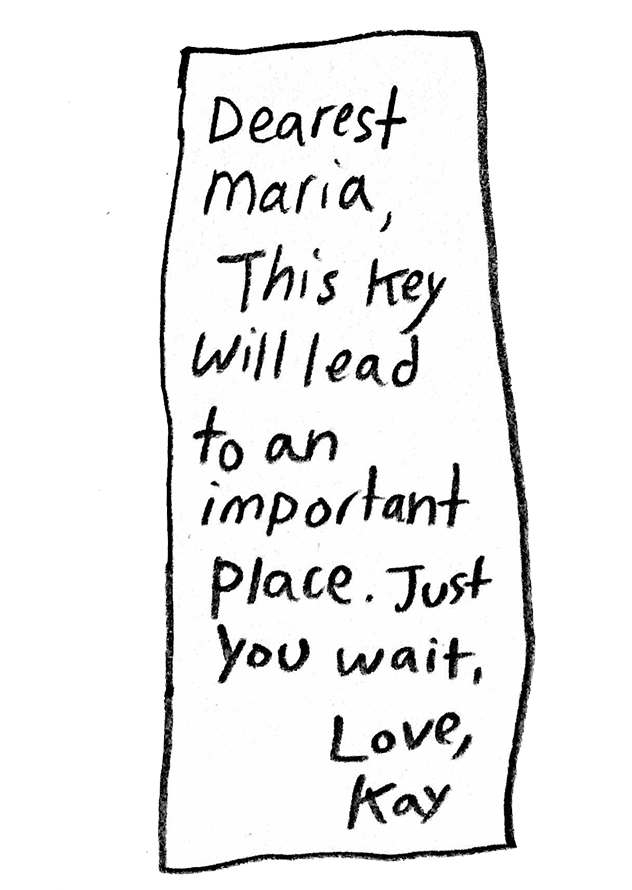 Dearest
Maria,
This key
will lead
to an
important
place. Just
you wait.
Love,
Kay